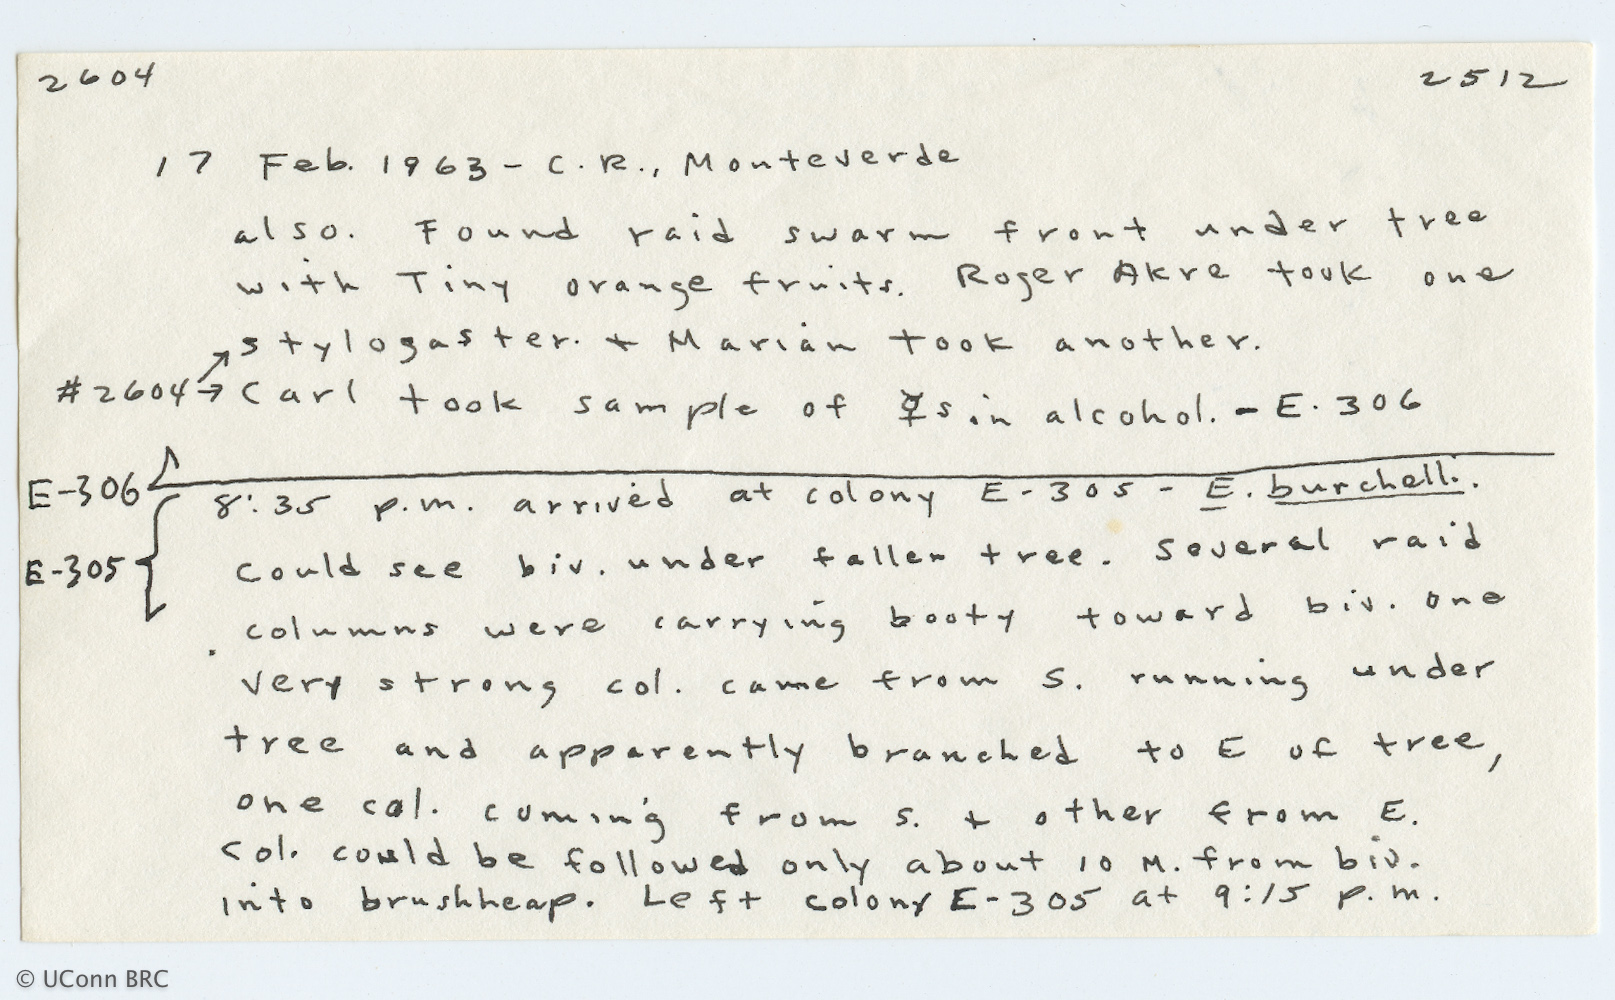 2604 2512
17 Feb. 1963 - C.R., Monteverde
also. Found raid swarm front under tree
with Tiny orange fruits. Roger Akre took one
stylogaster. + Marian took another.
#2604 → Carl took sample of ☿s in alcohol. - E-306
E-306
8:35 p.m. arrived at colony E-305 - E. burchelli.
E-305
Could see biv. under fallen tree. Several raid
columns were carrying booty toward biv. One
very strong col. came from S. running under
tree and apparently branched to E of tree,
one col. coming from S. + other from E.
Col. could be followed only about 10 M. from biv.
into brushheap. Left colony E-305 at 9:15 p.m.
© UConn BRC